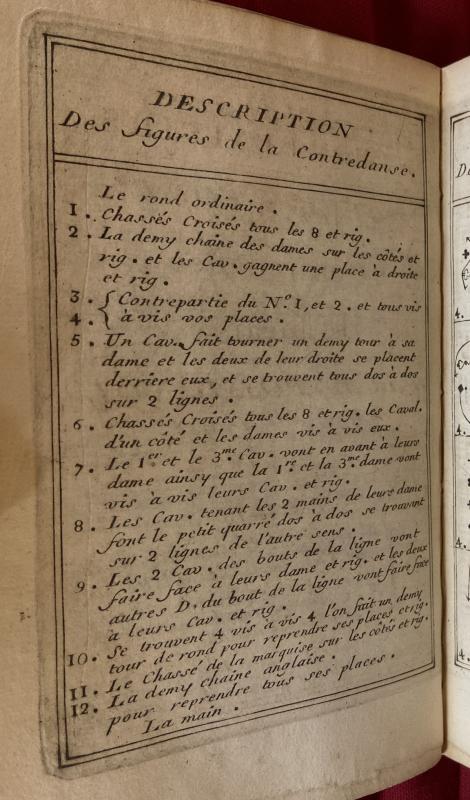 DESCRIPTION
Des figures de la Contredanse.
Le rond ordinaire.
1. Chassés Croisés tous les 8 et rig.
2. La demy chaîne des dames sur les côtés et
rig. et les Cav. gagnent une place à droite
et rig.
3. { Contrepartie du N.º 1, et 2. et tous vis
4. { à vis vos places.
5. Un Cav. fait tourner un demy tour à sa
dame et les deux de leur droite se placent
derrière eux, et se trouvent tous dos à dos
sur 2 lignes.
6. Chassés Croisés tous les 8 et rig. les Caval.
d'un côté et les dames vis à vis eux.
7. Le 1.er et le 3.me Cav. vont en avant à leurs
dame ainsy que la 1.re et la 3.me dame vont
vis à vis leurs Cav. et rig.
8. Les Cav. tenant les 2 mains de leurs dame
font le petit quarré dos à dos se trouvant
sur 2 lignes de l'autre sens.
9. Les 2 Cav. des bouts de la ligne vont
faire face à leurs dame et rig. et les deux
autres D. du bout de la ligne vont faire face
à leurs Cav. et rig.
10. Se trouvent 4 vis à vis 4 l'on fait un demy
tour de rond pour reprendre ses places et rig.
11. Le Chassé de la marquise sur les côtés et rig.
12. La demy chaîne anglaise.
pour reprendre tous ses places.
La main.
D
4.
4.
4.